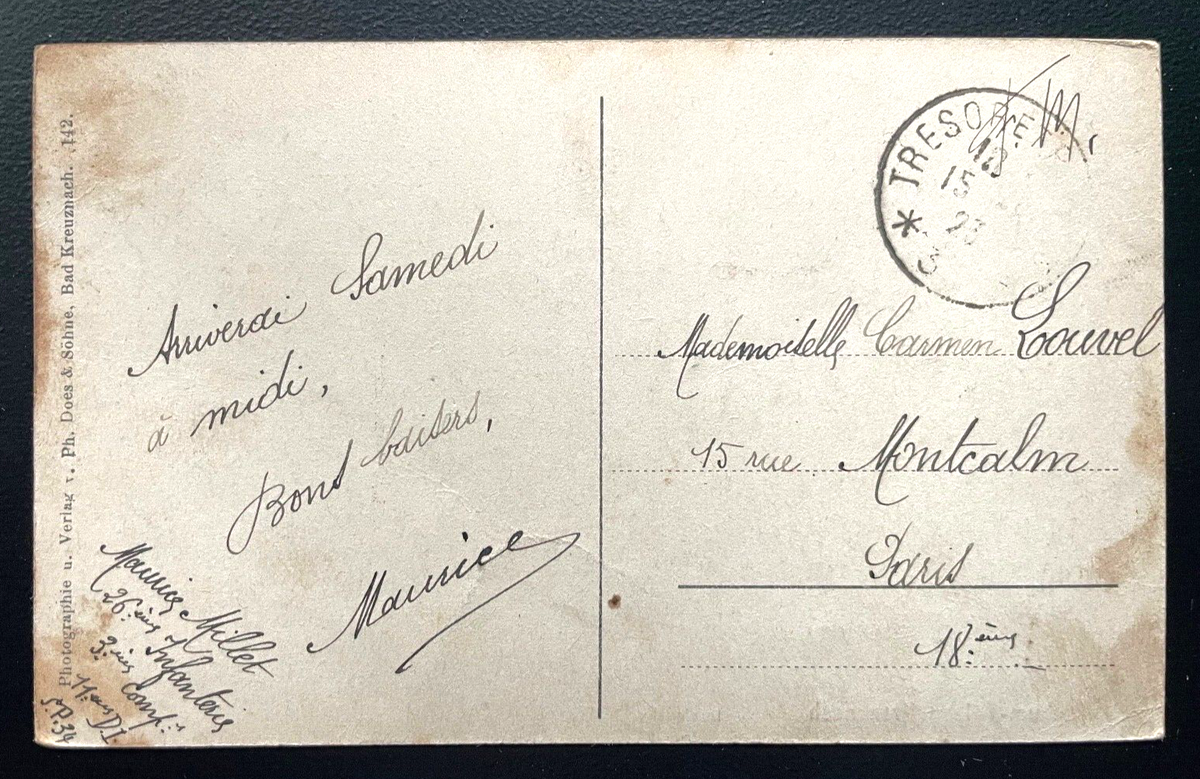 Photographie u. Verlag v. Ph. Does & Söhne, Bad Kreuznach. 142.
Arriverai Samedi
à midi,
Bons baisers,
Maurice
Maurice Millet
26.ème Infanterie
3.ème Comp.ie
11.ème D.I.
S.P.34
F.M.
* TRESOR E
18
15
23
Mademoiselle Carmen Louvel
15 rue Montcalm
Paris
18.ème